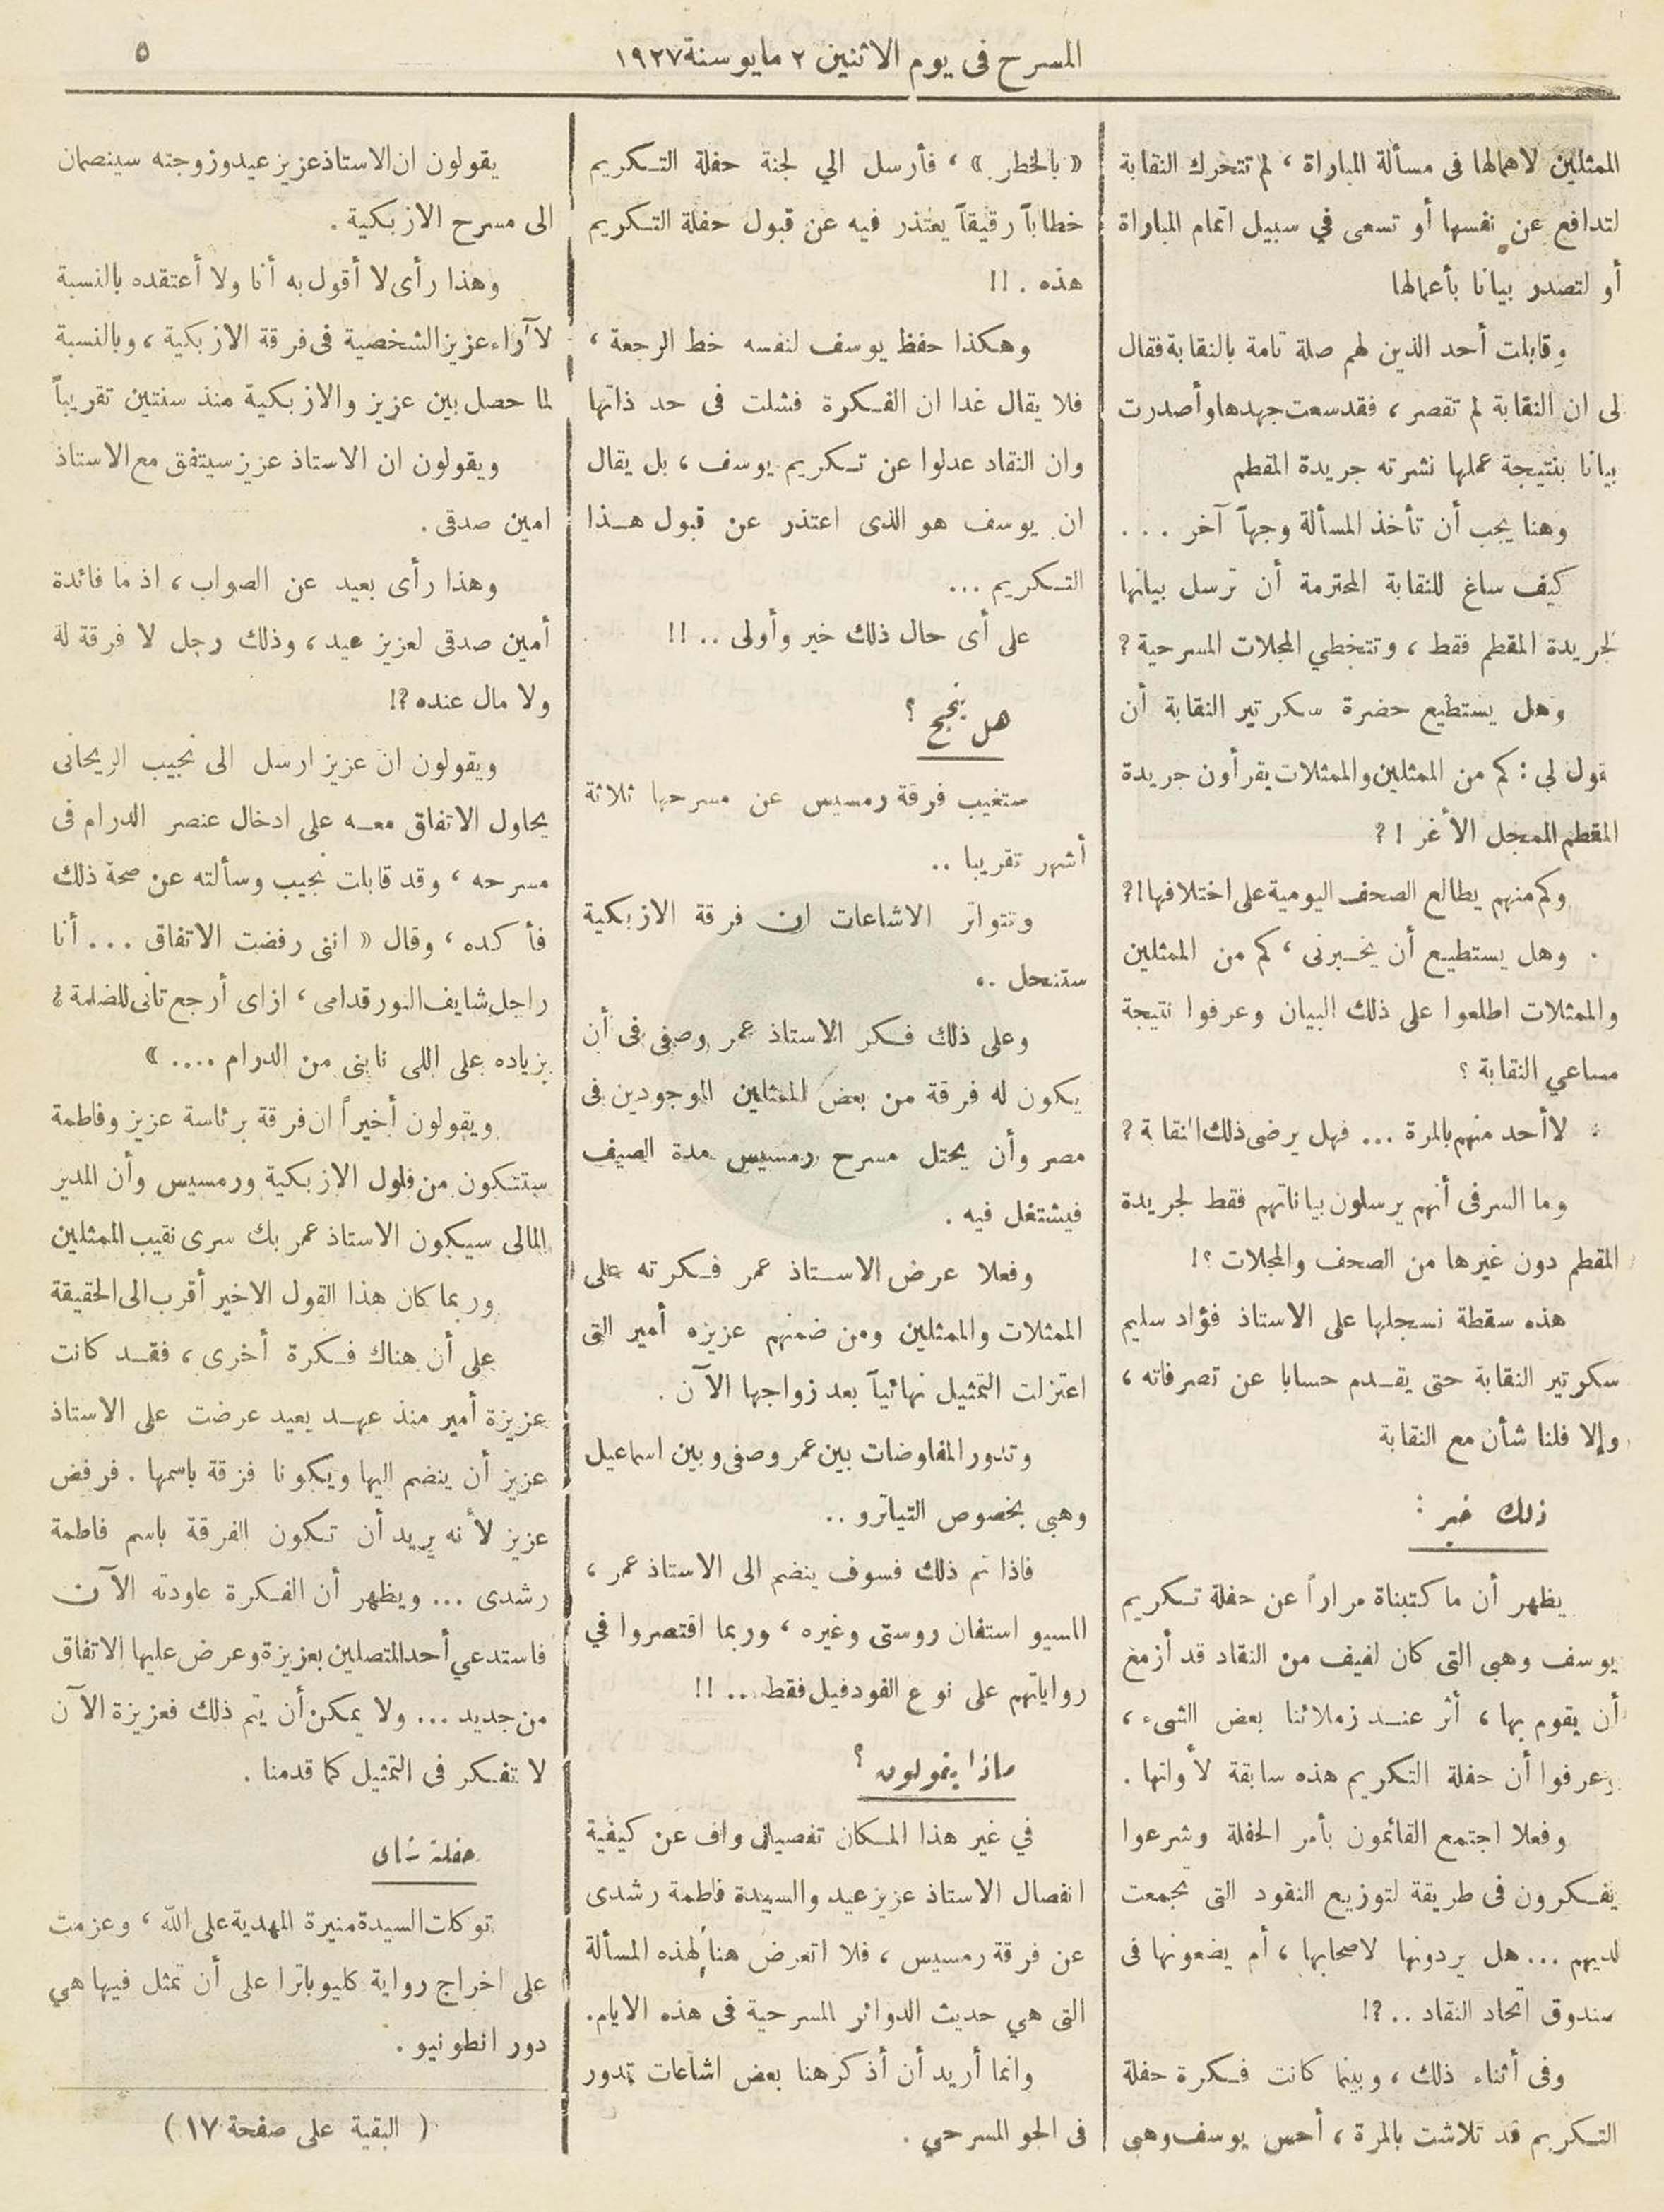 المسرح فى يوم الاثنين ٢ مايو سنة ١٩٢٧
٥
الممثلين لاهمالها فى مسألة المباراة ، لم تتحرك النقابة
لتدافع عن نفسها أو تسعى في سبيل اتمام المباراة
أو لتصدر بيانا بأعمالها
وقابلت أحد الذين لهم صلة تامة بالنقابة فقال
لى ان النقابة لم تقصر ، فقد سعت جهدها وأصدرت
بيانا بنتيجة عملها نشرته جريدة المقطم
وهنا يجب أن تأخذ المسألة وجهاً آخر . . .
كيف ساغ للنقابة المحترمة أن ترسل بيانها
لجريدة المقطم فقط ، وتتخطي المجلات المسرحية ؟
وهل يستطيع حضرة سكرتير النقابة أن
يقول لى : كم من الممثلين والممثلات يقرأون جريدة
المقطم المبجل الأغر ! ؟
وكم منهم يطالع الصحف اليومية على اختلافها !؟
وهل يستطيع أن يخبرنى ، كم من الممثلين
والممثلات اطلعوا على ذلك البيان وعرفوا نتيجة
مساعي النقابة ؟
لا أحد منهم بالمرة ... فهل يرضى ذلك النقابة ؟
وما السر فى أنهم يرسلون بياناتهم فقط لجريدة
المقطم دون غيرها من الصحف والمجلات ؟!
هذه سقطة نسجلها على الاستاذ فؤاد سليم
سكرتير النقابة حتى يقدم حسابا عن تصرفاته ،
وإلا فلنا شأن مع النقابة
ذلك خير :
يظهر أن ما كتبناة مراراً عن حفلة تكريم
يوسف وهبى التى كان لفيف من النقاد قد أزمع
أن يقوم بها ، أثر عند زملائنا بعض الشىء ،
وعرفوا أن حفلة التكريم هذه سابقة لأوانها .
وفعلا اجتمع القائمون بأمر الحفلة وشرعوا
يفكرون فى طريقة لتوزيع النقود التى تجمعت
لديهم ... هل يردونها لاصحابها ، أم يضعونها فى
صندوق اتحاد النقاد .. ؟!
وفى أثناء ذلك ، وبينما كانت فكرة حفلة
التكريم قد تلاشت بالمرة ، أحس يوسف وهبى
« بالخطر » ، فأرسل الي لجنة حفلة التكريم
خطاباً رقيقاً يعتذر فيه عن قبول حفلة التكريم
هذه . !!
وهكذا حفظ يوسف لنفسه خط الرجعة ،
فلا يقال غدا ان الفكرة فشلت فى حد ذاتها
وان النقاد عدلوا عن تكريم يوسف ، بل يقال
ان يوسف هو الذى اعتذر عن قبول هذا
التكريم ...
على أى حال ذلك خير وأولى .. !!
هل ينجح ؟
ستغيب فرقة رمسيس عن مسرحها ثلاثة
أشهر تقريبا ..
وتتواتر الاشاعات ان فرقة الازبكية
ستنحل ..
وعلى ذلك فكر الاستاذ عمر وصفى فى أن
يكون له فرقة من بعض الممثلين الموجودين فى
مصر وأن يحتل مسرح رمسيس مدة الصيف
فيشتغل فيه .
وفعلا عرض الاستاذ عمر فكرته على
الممثلات والممثلين ومن ضمنهم عزيزه أمير التى
اعتزلت التمثيل نهائياً بعد زواجها الآن .
وتدور المفاوضات بين عمر وصفى وبين اسماعيل
وهبى بخصوص التياترو ..
فاذا تم ذلك فسوف ينضم الى الاستاذ عمر ،
المسيو استفان روستى وغيره ، وربما اقتصروا في
رواياتهم على نوع الفودفيل فقط .. !!
ماذا يقولون ؟
في غير هذا المكان تفصيل واف عن كيفية
انفصال الاستاذ عزيز عيد والسيدة فاطمة رشدى
عن فرقة رمسيس ، فلا اتعرض هنا لهذه المسألة
التى هي حديث الدوائر المسرحية فى هذه الايام.
وانما أريد أن أذكر هنا بعض اشاعات تدور
فى الجو المسرحي .
يقولون ان الاستاذ عزيز عيد وزوجته سينضمان
الى مسرح الازبكية .
وهذا رأى لا أقول به أنا ولا أعتقده بالنسبة
لآراء عزيز الشخصية فى فرقة الازبكية ، وبالنسبة
لما حصل بين عزيز والازبكية منذ سنتين تقريباً
ويقولون ان الاستاذ عزيز سيتفق مع الاستاذ
امين صدقى .
وهذا رأى بعيد عن الصواب ، اذ ما فائدة
أمين صدقى لعزيز عيد ، وذلك رجل لا فرقة له
ولا مال عنده ؟!
ويقولون ان عزيز ارسل الى نجيب الريحانى
يحاول الاتفاق معه على ادخال عنصر الدرام فى
مسرحه ، وقد قابلت نجيب وسألته عن صحة ذلك
فأكده ، وقال « اننى رفضت الاتفاق ... أنا
راجل شايف النور قدامى ، ازاى أرجع تانى للضلمة ؟
بزياده على اللى نابنى من الدرام .... »
ويقولون أخيراً ان فرقة برئاسة عزيز وفاطمة
ستتكون من فلول الازبكية ورمسيس وأن المدير
المالى سيكون الاستاذ عمر بك سرى نقيب الممثلين
وربما كان هذا القول الاخير أقرب الى الحقيقة
على أن هناك فكرة أخرى ، فقد كانت
عزيزة أمير منذ عهد بعيد عرضت على الاستاذ
عزيز أن ينضم اليها ويكونا فرقة باسمها . فرفض
عزيز لأنه يريد أن تكون الفرقة باسم فاطمة
رشدى ... ويظهر أن الفكرة عاودته الآن
فاستدعي أحد المتصلين بعزيزة وعرض عليها الاتفاق
من جديد ... ولا يمكن أن يتم ذلك فعزيزة الآن
لا تفكر فى التمثيل كما قدمنا .
حفلة شاى
توكلت السيدة منيرة المهدية على الله ، وعزمت
على اخراج رواية كليوباترا على أن تمثل فيها هي
دور انطونيو .
( البقية على صفحة ١٧ )